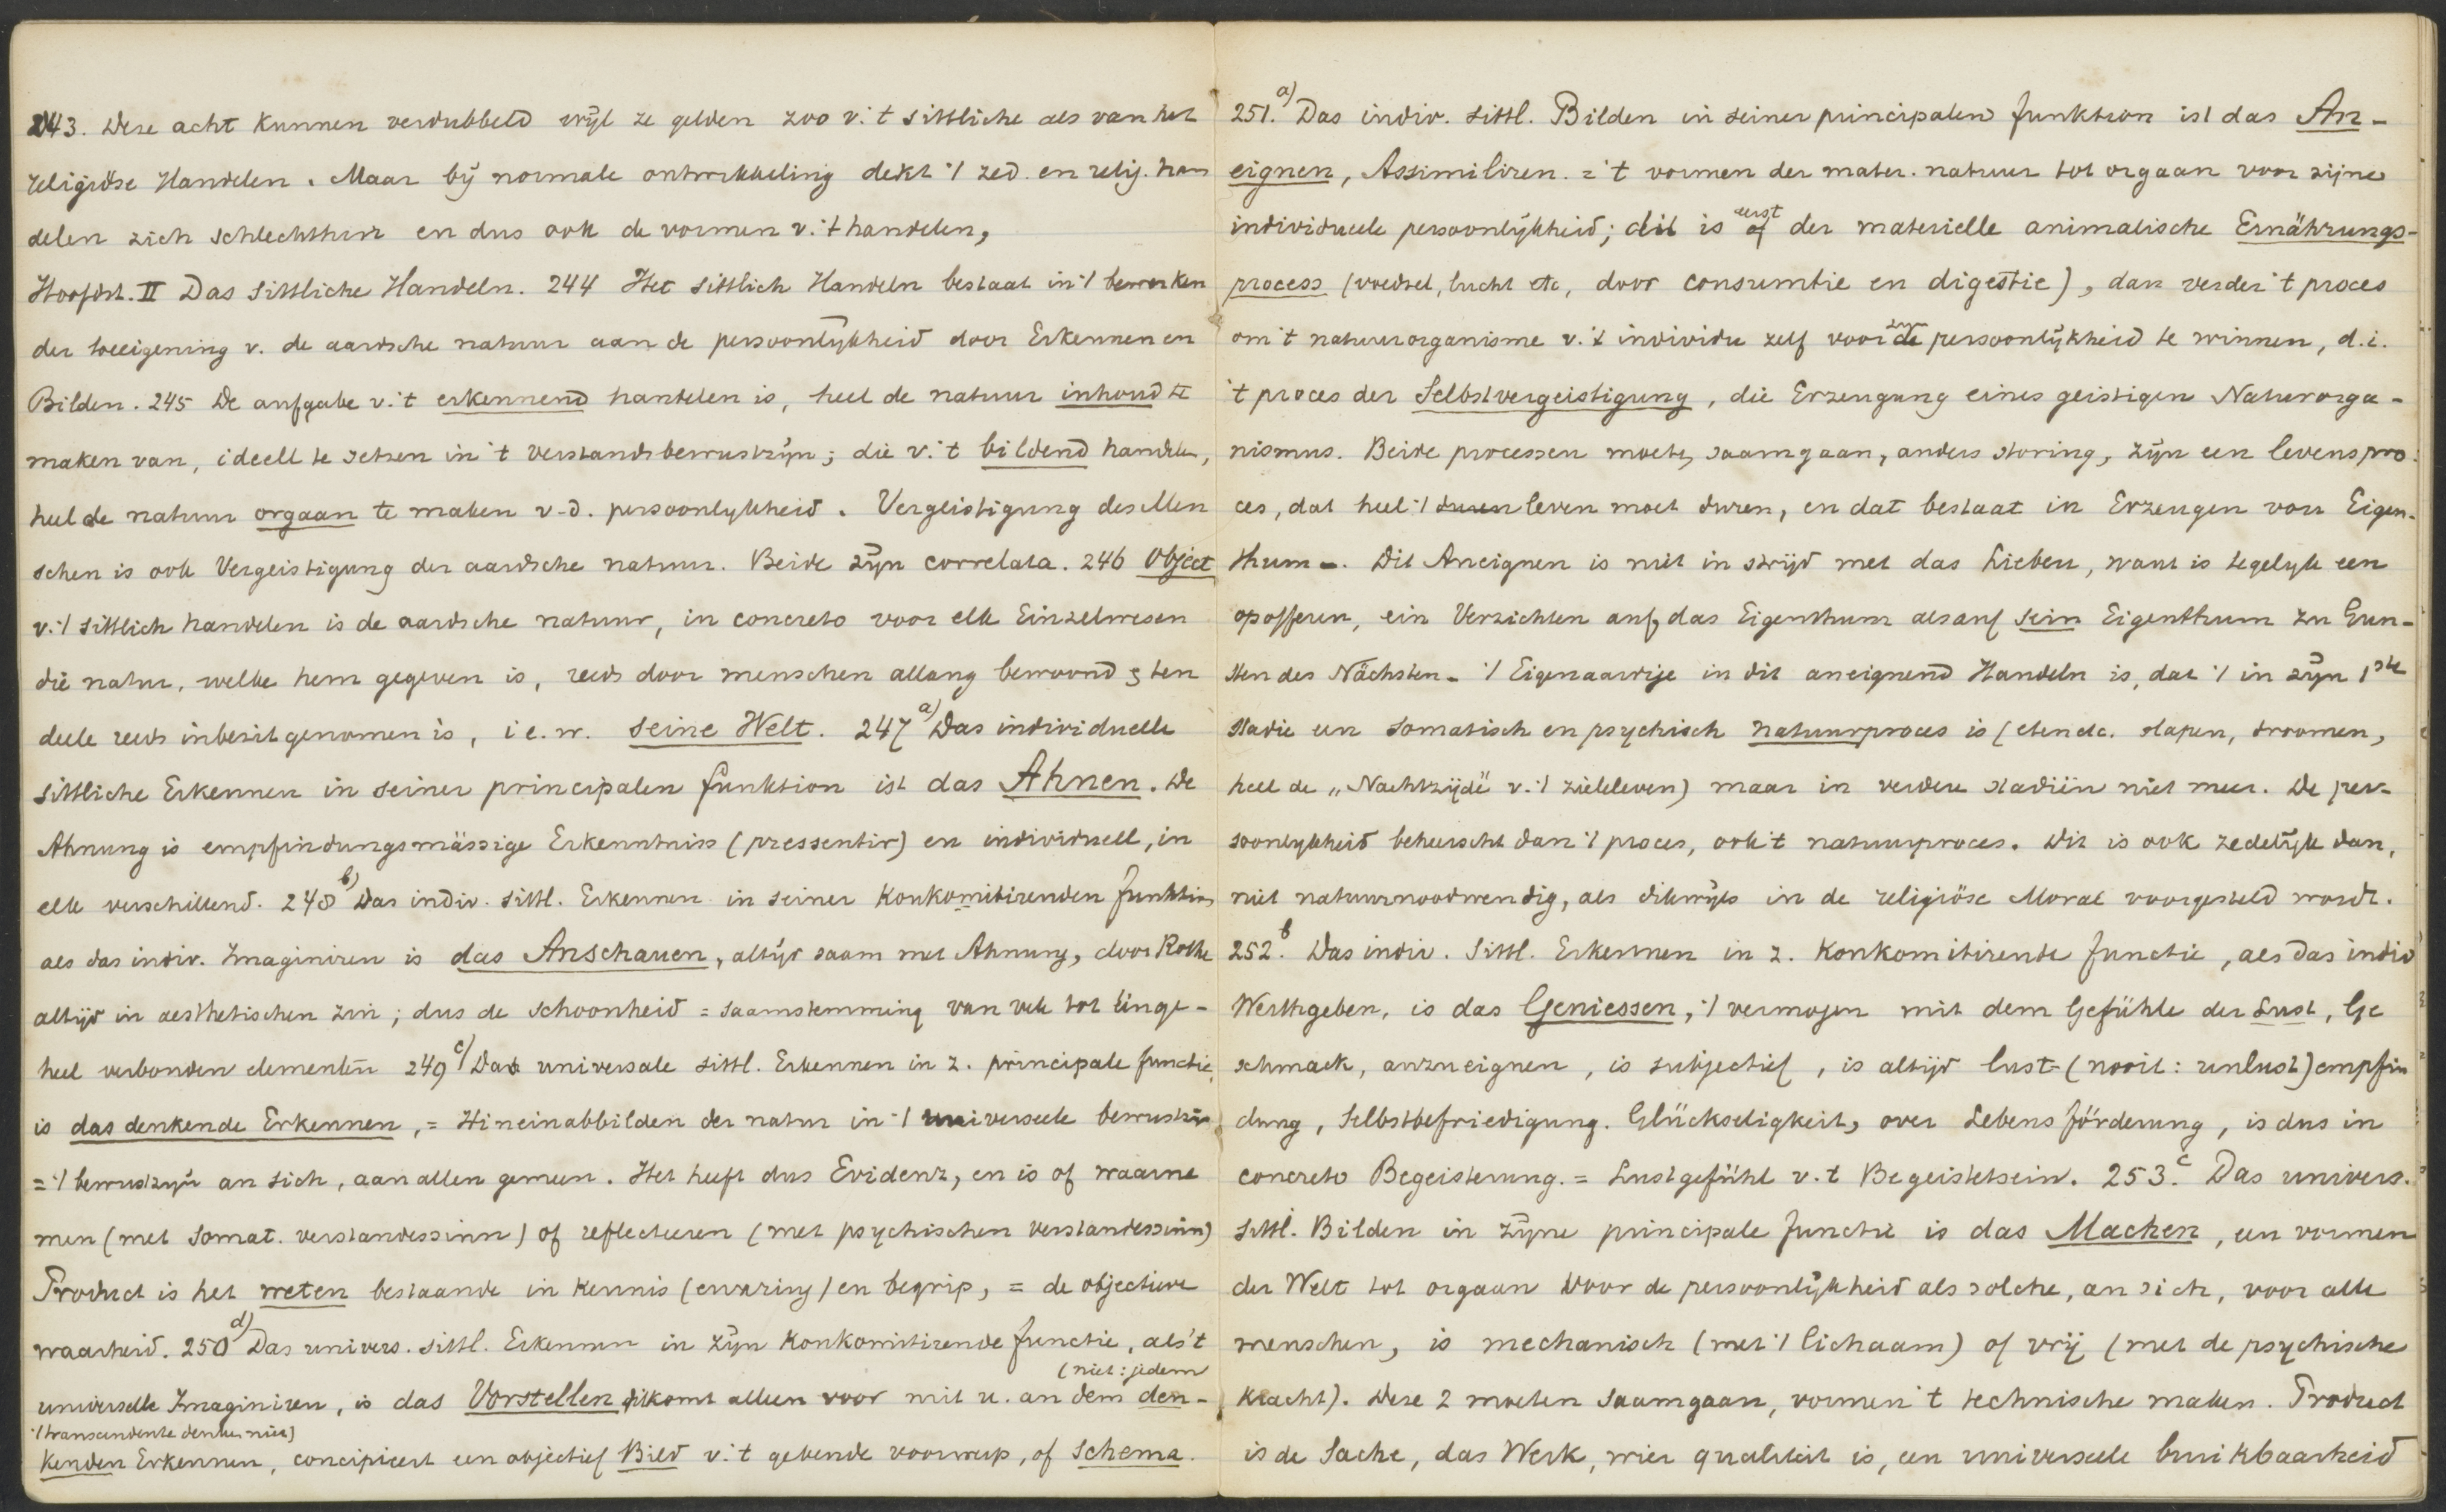 243. Deze acht kunnen verdubbeld wijl ze gelden zoo v. 't sittliche als van het
religiöse Handelen. Maar bij normale ontwikkeling dekt 't zed. en relig. han
delen zich schlechthin en dus ook de vormen v. 't handelen,
Hoofdst. II Das Sittliche Handeln. 244 Het sittlich Handeln bestaat in 't bewerken
der toeeigening v. de aardsche natuur aan de persoonlijkheid door Erkennen en
Bilden. 245 De aufgabe v. 't erkennend handelen is, heel de natuur inhoud te
maken van, ideell te setzen in 't verstandsbewustzijn; die v. 't bildend handelen,
heel de natuur orgaan te maken v. d. persoonlijkheid. Vergeistigung des Men
schen is ook Vergeistigung der aardsche natuur. Beide zijn correlata. 246 Object
v. 't sittlich handelen is de aardsche natuur, in concreto voor elk Einzelwesen
die natur, welke hem gegeven is, reeds door menschen allang bewoond & ten
deele reeds inbezit genomen is, i. e. w. seine Welt. 247 a) Das individuelle
sittliche Erkennen in seiner principalen funktion ist das Ahnen. De
Ahnung is empfindungsmässige Erkenntniss (pressentir) en individuell, in
elk verschillend. 248 b) Das indiv. sittl. Erkennen in seiner Konkomitirenden funktion
als das indiv. Imaginiren is das Anschauen, altijd saam met Ahnung, door Rothe
altijd in aesthetischen zin; dus de schoonheid = saamstemming van vele tot Einge-
heel verbonden elementen 249 c) Das universale sittl. Erkennen in z. principale functie,
is das denkende Erkennen, = Hineinabbilden der natur in 't universeele bewustzijn
= 't bewustzijn an sich, aan allen gemeen. Het heeft dus Evidenz, en is of waarne
men (met somat. verstandessinn) of reflecteeren (met psychischen verstandessinn)
Product is het weten bestaande in kennis (ervaring) en begrip, = de objectieve
waarheid. 250 d) Das univers. sittl. Erkennen in zijn Konkomitirende functie, als 't
(niet: jedem
universelle Imaginiren, is das Vorstellen, dit komt alleen voor mit u. an dem den-
't transcendente denken niet)
kenden Erkennen, concipieert een objectief Bild v. 't gebende voorwerp, of Schema.
251. a) Das indiv. sittl. Bilden in seiner principalen funktion ist das An-
eignen, Assimiliren. = 't vormen der mater. natuur tot orgaan voor zijne
individueele persoonlijkheid; dit is eerst of der materielle animalische Ernährungs-
process (voedsel, lucht etc, door consumtie en digestie), dan verder 't proces
om 't natuurorganisme v. 't individu zelf voor de persoonlijkheid te winnen, d. i.
't proces der Selbstvergeistigung, die Erzeugung eines geistigen Naturorga-
nismus. Beide processen moeten saamgaan, anders storing, zijn een levenspro-
ces, dat heel 't leven moet duren, en dat bestaat in Erzeugen von Eigen-
thum -. Dit Aneignen is niet in strijd met das Lieben, want is tegelijk een
opofferen, ein Verzichten auf das Eigenthum als auf sein Eigenthum zu Gun-
sten des Nächsten - 't Eigenaardige in dit aneignend Handeln is, dat 't in zijn 1ste
stadie een somatisch en psychisch natuurproces is (eten etc. slapen, droomen,
heel de „Nachtzijde" v. 't zieleleven) maar in verdere stadiën niet meer. De per-
soonlijkheid beheerscht dan 't proces, ook 't natuurproces. Dit is ook zedelijk dan,
niet natuurnoodwendig, als dikwijls in de religiöse Moral voorgesteld wordt.
252. b Das indiv. Sittl. Erkennen in z. Konkomitirende functie, als das indiv
Werthgeben, is das Geniessen, 't vermogen mit dem Gefühle der Lust, Ge
schmack, anzueignen, is subjectief, is altijd lust- (nooit: unlust) empfin
dung, Selbstbefriedigung. Glückseligkeit, over Lebensförderung, is dus in
concreto Begeisterung. = Lustgefühl v. 't Begeistetsein. 253. c Das univers.
sittl. Bilden in zijne principale functie is das Machen, een vormen
der Welt tot orgaan voor de persoonlijkheid als solche, an sich, voor alle
menschen, is mechanisch (met 't lichaam) of vrij (met de psychische
kracht). Deze 2 moeten saamgaan, vormen 't technische maken. Product
is de Sache, das Werk, wier qualiteit is, een universeele bruikbaarheid